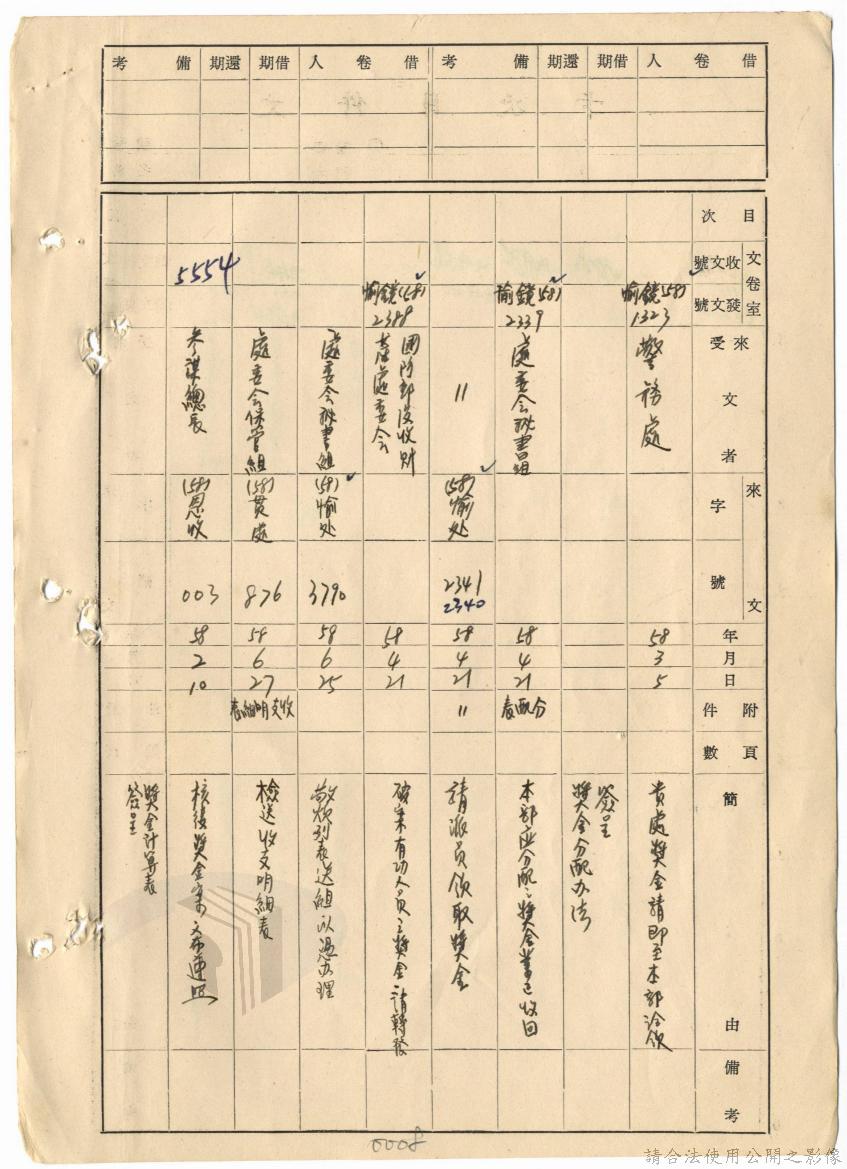 借卷人 借期 還期 備考 借卷人 借期 還期 備考
目次
文卷室 收文號 發文號
來受文者
來文 字號
年月日
附件頁數
簡由
備考
愉鏡(58)1323
警務處
58 3 5
貴處獎金請即至本部洽領
簽呈
獎金分配办法
愉鏡(58)2339
處委会秘書組
58 4 21
分配表
本部应分配之獎金業已收回
〃
(58)愉处
2341
2340
58 4 21
〃
請派員領取獎金
愉鏡(58)2388
國防部没收財
產處委会
58 4 21
破案有功人員之獎金請轉發
處委会秘書組
(58)愉处
3790
58 6 25
敬煩列表送組以憑办理
處委会保管組
(58)貫處
876
58 6 27
收支明細表
檢送收支明細表
5554
參謀總長
(58)恩收
003
58 2 10
核後獎金案 希遵照
獎金計算表
簽呈
0008
請合法使用公開之影像